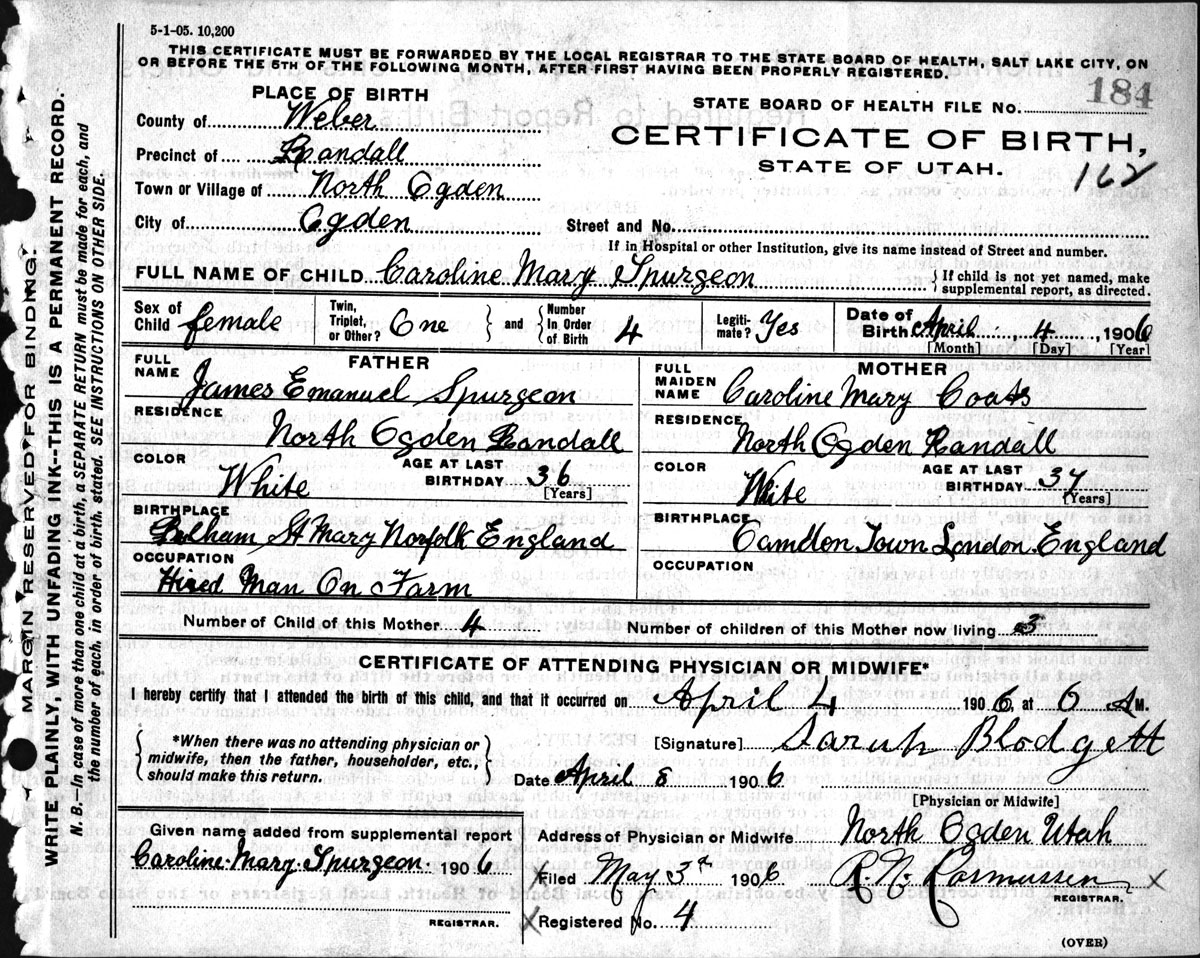 5-1-05. 10,200
THIS CERTIFICATE MUST BE FORWARDED BY THE LOCAL REGISTRAR TO THE STATE BOARD OF HEALTH, SALT LAKE CITY, ON
OR BEFORE THE 5TH OF THE FOLLOWING MONTH, AFTER FIRST HAVING BEEN PROPERLY REGISTERED.
PLACE OF BIRTH
County of Weber
Precinct of Randall
Town or Village of North Ogden
City of Ogden
STATE BOARD OF HEALTH FILE NO. 184
CERTIFICATE OF BIRTH,
STATE OF UTAH.
162
Street and No.
If in Hospital or other Institution, give its name instead of Street and number.
FULL NAME OF CHILD Caroline Mary Spurgeon { If child is not yet named, make
supplemental report, as directed.
Sex of Child female Twin, Triplet, or Other? One } and { Number In Order of Birth 4 Legiti-mate? Yes Date of Birth April 4, 1906
[Month] [Day] [Year]
FATHER
FULL NAME James Emanuel Spurgeon
RESIDENCE
North Ogden Randall
COLOR White AGE AT LAST BIRTHDAY 36
[Years]
BIRTHPLACE
Pulham St Mary Norfolk England
OCCUPATION
Hired Man On Farm
MOTHER
FULL MAIDEN NAME Caroline Mary Coats
RESIDENCE
North Ogden Randall
COLOR White AGE AT LAST BIRTHDAY 37
[Years]
BIRTHPLACE
Camden Town London England
OCCUPATION
Number of Child of this Mother 4 Number of children of this Mother now living 3
CERTIFICATE OF ATTENDING PHYSICIAN OR MIDWIFE*
I hereby certify that I attended the birth of this child, and that it occurred on April 4 1906, at 0 AM.
{ *When there was no attending physician or
midwife, then the father, householder, etc.,
should make this return. }
[Signature] Sarah Blodgett
Date April 8 1906
[Physician or Midwife]
Given name added from supplemental report
Caroline Mary Spurgeon 1906
REGISTRAR.
Address of Physician or Midwife North Ogden Utah
X Filed May 3rd 1906 R. N. Rasmussen X
REGISTRAR.
X Registered No. 4
(OVER)
MARGIN RESERVED FOR BINDING.
WRITE PLAINLY, WITH UNFADING INK--THIS IS A PERMANENT RECORD.
N. B.—In case of more than one child at a birth, a SEPARATE RETURN must be made for each, and
the number of each, in order of birth, stated. SEE INSTRUCTIONS ON OTHER SIDE.